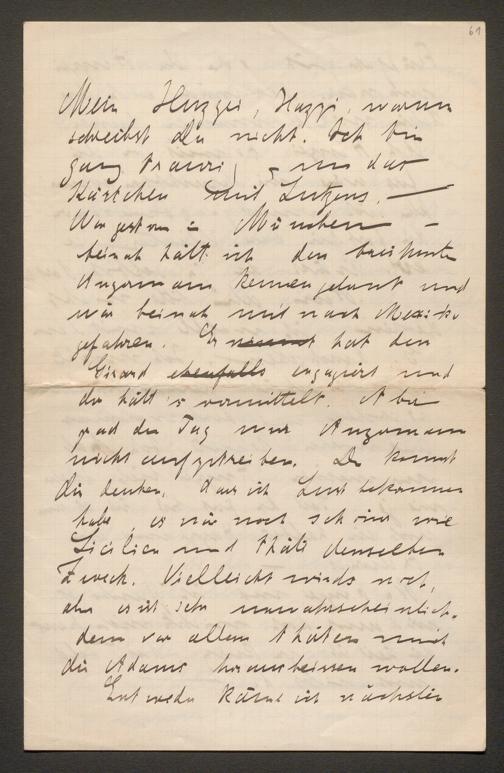 61
Mein Herzgei, Hazzi, warum
schreibst du nicht. Ich bin
ganz traurig – nur das
Kärtchen mit Lutzens. —
War gestern in München –
beinah hätt ich den
Angermann kennen gelernt und
wär beinah mit nach Mexiko
gefahren. Er nimmt hat den
Girard ebenfalls engagiert und
der hätt's vermittelt. Aber
grad den Tag war Angermann
nicht aufzutreiben. Du kannst
dir denken, dass ich Lust bekommen
habe, es wär noch schöner wie
Sicilien und thäte denselben
Zweck. Vielleicht wirds noch,
aber es ist sehr unwahrscheinlich,
denn vor allem thäten mich
die Adams herausbeissen wollen.
Entweder käme ich nächsten